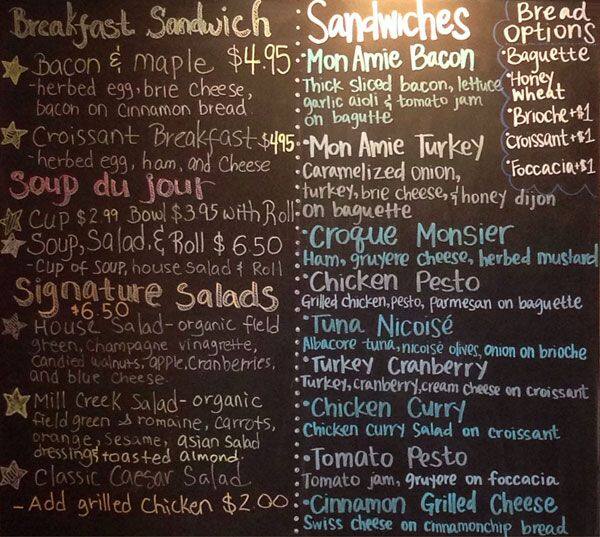 Breakfast Sandwich
Bacon & maple $4.95
-herbed egg, brie cheese,
bacon on cinnamon bread
Croissant Breakfast $4.95
-herbed egg, ham, and cheese
Soup du jour
Cup $2.99 Bowl $3.95 with Roll
Soup, Salad, & Roll $6.50
-Cup of soup, house salad & Roll
Signature Salads
$6.50
House Salad-organic field
green, champagne vinagrette,
candied walnuts, apple, cranberries,
and blue cheese
Mill Creek Salad-organic
field green & romaine, carrots,
orange, sesame, asian salad
dressing & toasted almond.
Classic Caesar Salad
- Add grilled chicken $2.00
Sandwiches
•Mon Amie Bacon
Thick sliced bacon, lettuce
garlic aioli & tomato jam
on bagutte
•Mon Amie Turkey
Caramelized onion,
turkey, brie cheese, & honey dijon
on baguette
•Croque Monsier
Ham, gruyere cheese, herbed mustard
•Chicken Pesto
Grilled chicken, pesto, parmesan on baguette
•Tuna Nicoisé
Albacore tuna, nicoise olives, onion on brioche
•Turkey Cranberry
Turkey, cranberry, cream cheese on croissant
•Chicken Curry
Chicken curry Salad on croissant
•Tomato Pesto
Tomato jam, gruyere on foccacia
•Cinnamon Grilled Cheese
Swiss cheese on cinnamonchip bread
Bread
Options
•Baguette
•Honey
Wheat
•Brioche+$1
•Croissant+$1
•Foccacia+$1